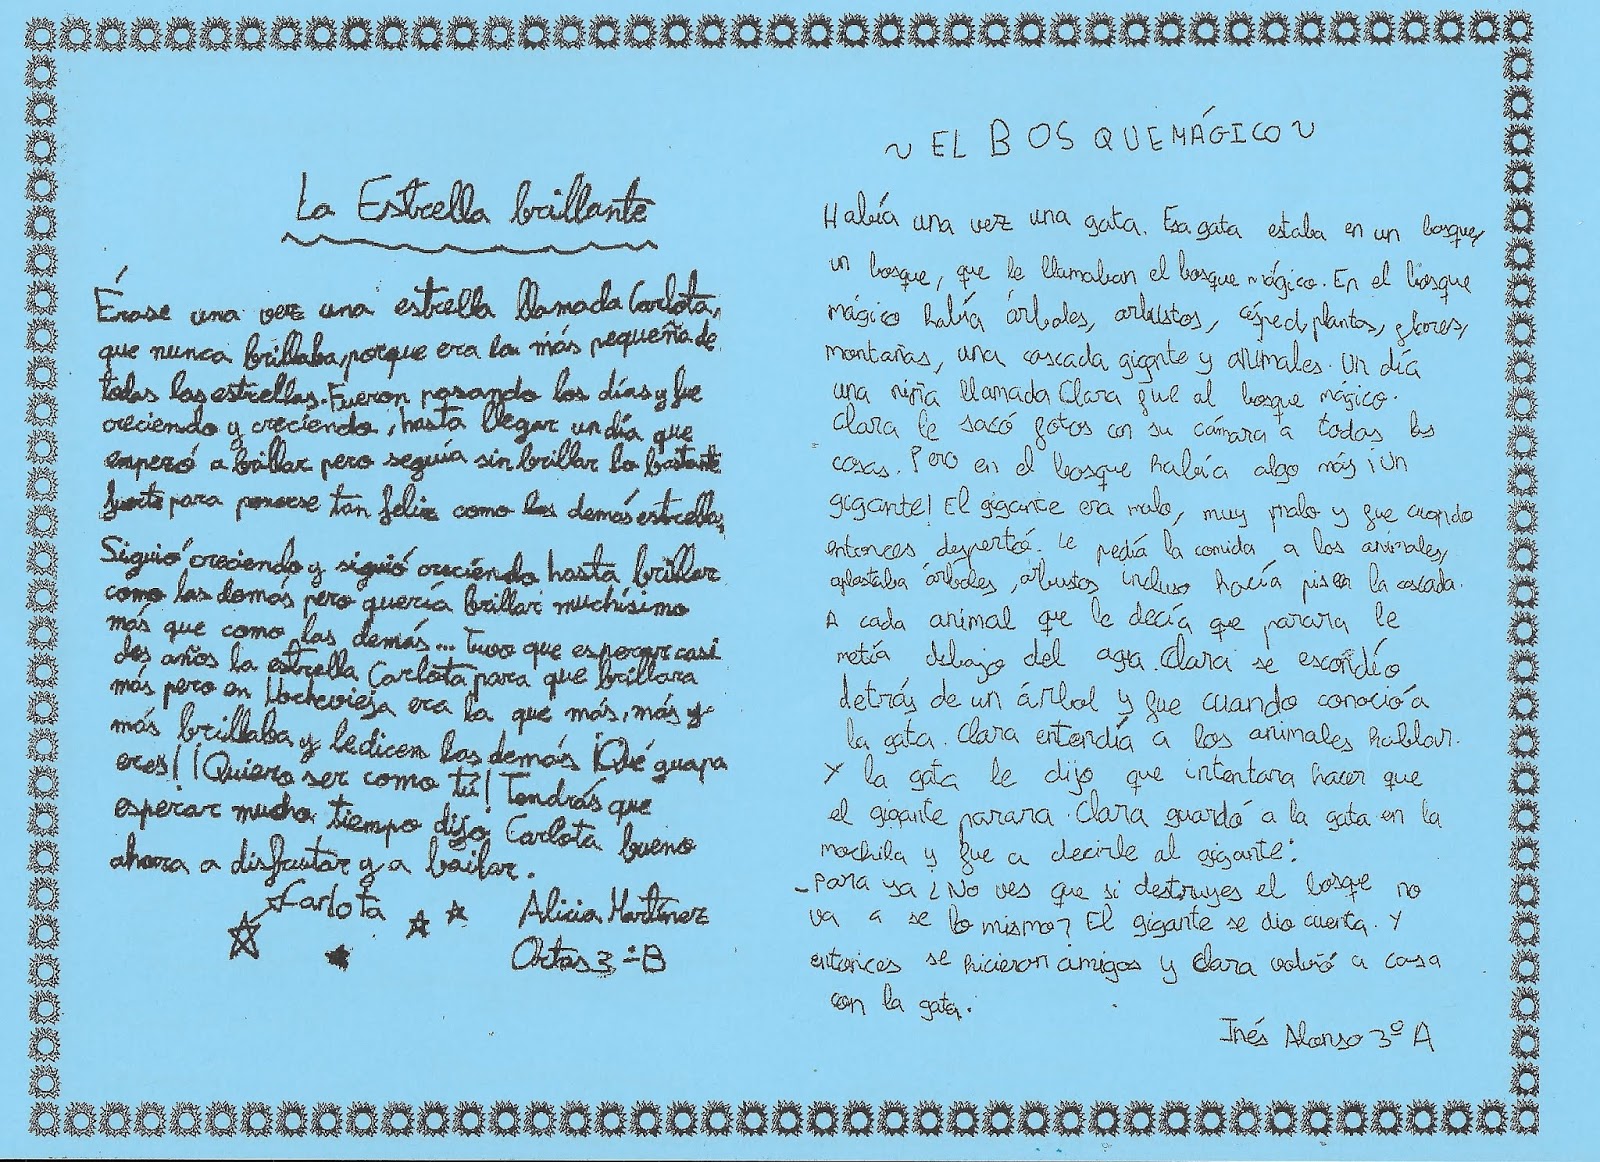 La Estrella brillante
Érase una vez una estrella llamada Carlota,
que nunca brillaba, porque era la más pequeña de
todas las estrellas. Fueron pasando los días y fue
creciendo y creciendo, hasta llegar un día que
emperó a brillar pero seguía sin brillar lo bastante
fuerte para ponerse tan feliz como las demás estrellas,
Siguió creciendo y siguió creciendo hasta brillar
como las demás pero quería brillar muchísimo
más que como las demás... Tuvo que esperar casi
dos años la estrella Carlota para que brillara
más pero en Nochevieja era la que más, más y
más brillaba y le dicen las demás ¡Qué guapa
eres! ¡Quiero ser como tú! Tendrás que
esperar mucho tiempo dijo Carlota bueno
ahora a disfrutar y a bailar.
Carlota
Alicia Martínez
3º B
~ EL BOSQUE MÁGICO ~
Había una vez una gata. Esa gata estaba en un bosque,
un bosque, que le llamaban el bosque mágico. En el bosque
mágico había árboles, arbustos, césped, plantas, flores,
montañas, una cascada gigante y animales. Un día
una niña llamada Clara fue al bosque mágico.
Clara le sacó fotos con su cámara a todas las
cosas. Pero en el bosque había algo más ¡Un
gigante! El gigante era malo, muy malo y fue cuando
entonces despertó. Le pedía la comida a los animales,
aplastaba árboles, arbustos incluso hacía pis en la cascada.
A cada animal que le decía que parara le
metía debajo del agua. Clara se escondío
detrás de un árbol y fue cuando conoció a
la gata. Clara entendía a los animales hablar.
Y la gata le dijo que intentara hacer que
el gigante parara. Clara guardó a la gata en la
mochila y fue a decirle al gigante:
-Para ya ¿No ves que si destruyes el bosque no
va a se lo mismo? El gigante se dio cuenta. Y
entonces se hicieron amigos y Clara volvió a casa
con la gata.
Inés Alonso 3º A